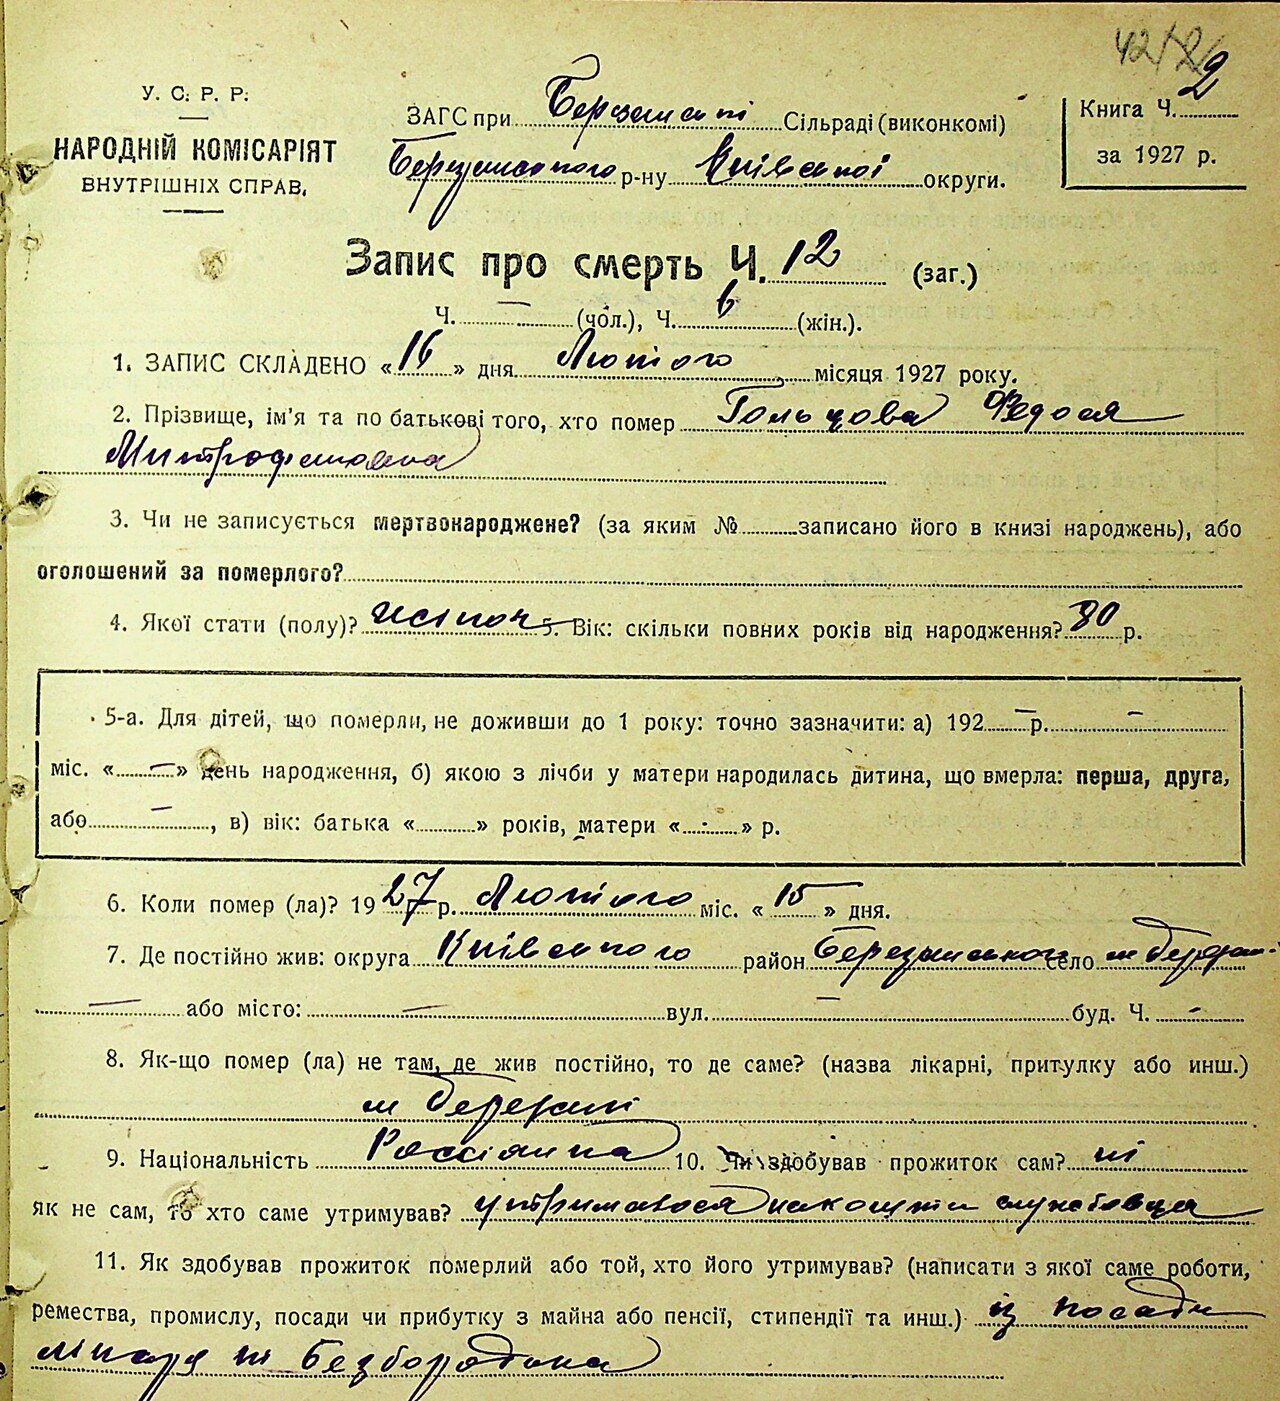 42/22
У. С. Р. Р.
НАРОДНІЙ КОМІСАРІЯТ
ВНУТРІШНІХ СПРАВ.
ЗАГС при Березанські Сільраді (виконкомі)
Березанського р-ну Київської округи.
Книга Ч. 2
за 1927 р.
Запис про смерть Ч. 12 (заг.)
Ч. — (чол.), Ч. 6 (жін.).
1. ЗАПИС СКЛАДЕНО «16» дня Лютого місяця 1927 року.
2. Прізвище, ім'я та по батькові того, хто помер Гольцова Федося
Митрофановна
3. Чи не записується мертвонароджене? (за яким № записано його в книзі народжень), або
оголошений за померлого?
4. Якої стати (полу)? жіноч 5. Вік: скільки повних років від народження? 80 р.
5-а. Для дітей, що померли, не доживши до 1 року: точно зазначити: а) 192 — р. —
міс. « — » день народження, б) якою з лічби у матери народилась дитина, що вмерла: перша, друга,
або — , в) вік: батька « » років, матери « - » р.
6. Коли помер (ла)? 1927 р. Лютого міс. «15» дня.
7. Де постійно жив: округа Київського район Березанського село м Березані
— або місто: — вул. — буд. Ч. -
8. Як-що помер (ла) не там, де жив постійно, то де саме? (назва лікарні, притулку або инш.)
м Березані
9. Національність Россіянка 10. Чи здобував прожиток сам? ні
як не сам, то хто саме утримував? утримавося на кошти службовця
11. Як здобував прожиток померлий або той, хто його утримував? (написати з якої саме роботи,
ремества, промислу, посади чи прибутку з майна або пенсії, стипендії та инш.) із посади
лікаря Безбородька